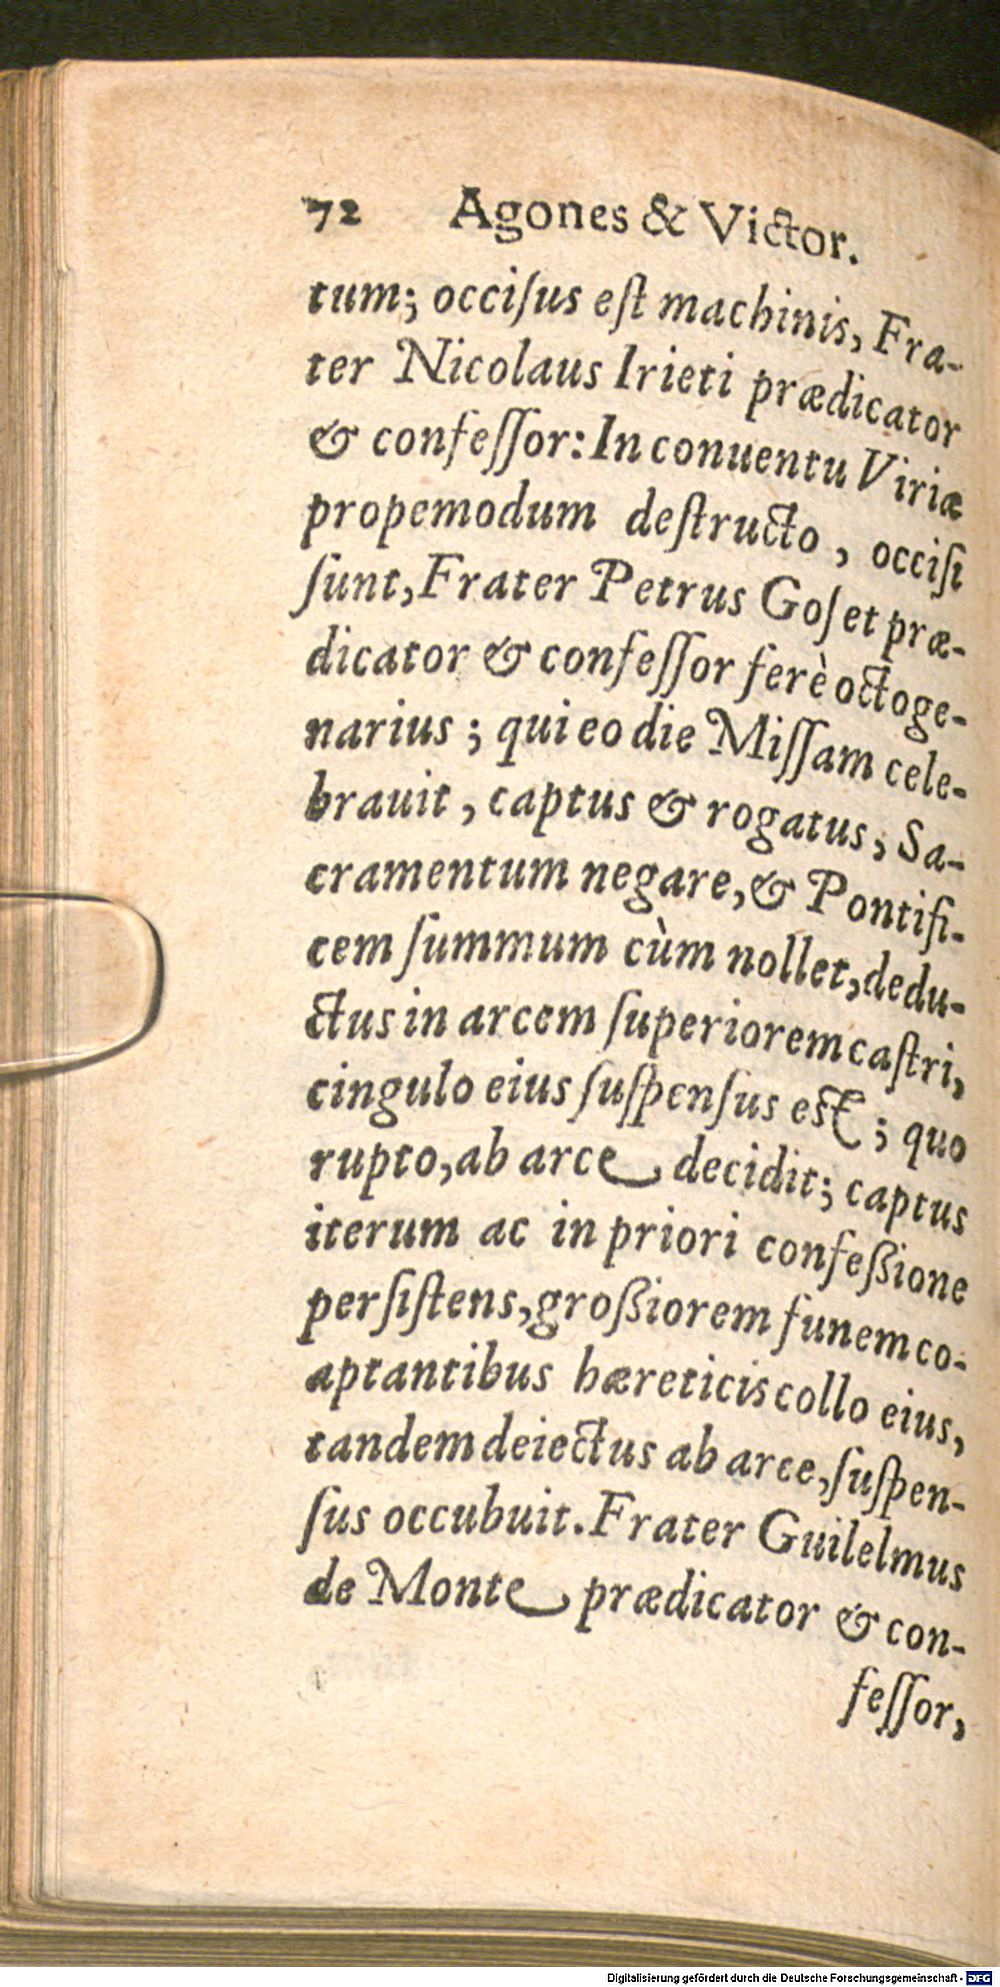 72 Agones & Victor.
tum; occiſus eſt machinis, Fra-
ter Nicolaus Irieti prædicator
& confeſſor: In conuentu Viriæ
propemodum deſtructo, occiſi
ſunt, Frater Petrus Goſet præ-
dicator & confeſſor ferè octoge-
narius; qui eo die Miſſam cele-
brauit, captus & rogatus, Sa-
cramentum negare, & Pontifi-
cem ſummum cùm nollet, dedu-
ctus in arcem ſuperiorem caſtri,
cingulo eius ſuſpenſus eſt; quo
rupto, ab arce decidit; captus
iterum ac in priori confeßione
perſiſtens, großiorem funem co-
aptantibus hæreticis collo eius,
tandem deiectus ab arce, ſuſpen-
ſus occubuit. Frater Guilelmus
de Monte prædicator & con-
feſſor,
Digitalisierung gefördert durch die Deutsche Forschungsgemeinschaft - DFG